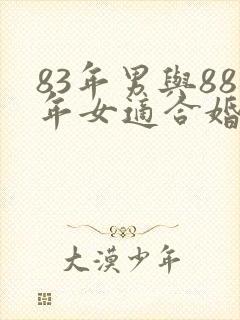 83年男與88
年女適合婚
大漠少年